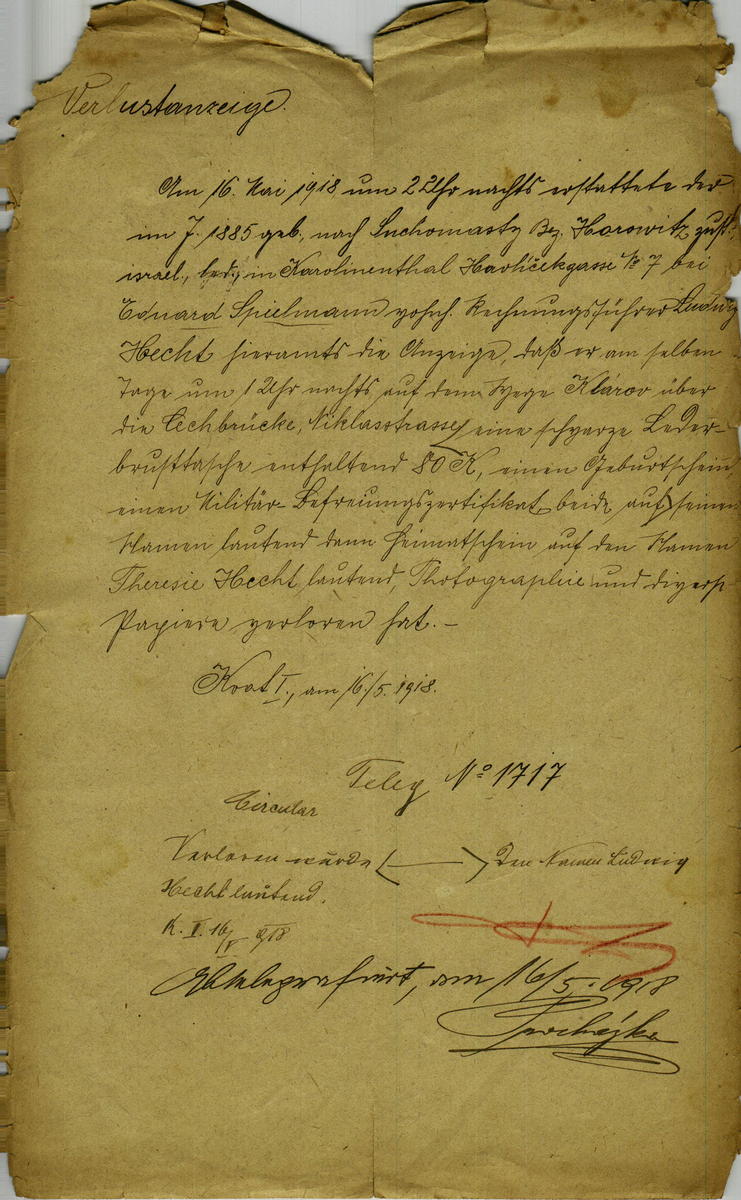 Verlustanzeige.
Am 16. Mai 1918 um 2 Uhr nachts erstattete der
im J. 1885 geb., nach Suchomasty Bez. Horowitz zust.,
israel., led., in Karolinenthal Havlíčekgasse № 7 bei
Eduard Spielmann wohnh. Rechnungsführer Ludwig
Hecht hieramts die Anzeige, daß er am selben
Tage um 1 Uhr nachts auf dem Wege Klárov über
die Čechbrücke, Niklasstrasse eine schwarze Leder-
brusttasche enthaltend 80 K, einen Geburtschein,
einen Militär-Befreiungszertifikat beide auf seinen
Namen lautend dann Heimatschein auf den Namen
Theresie Hecht lautend, Photographie und diverse
Papiere verloren hat. –
Koat I., am 16./5. 1918.
Teleg № 1717
Circular
Verloren wurde ( — ) den Namen Ludwig
Hecht lautend.
K. I. 16/V 918
Abtelegrafiert, am 16/5. 1918